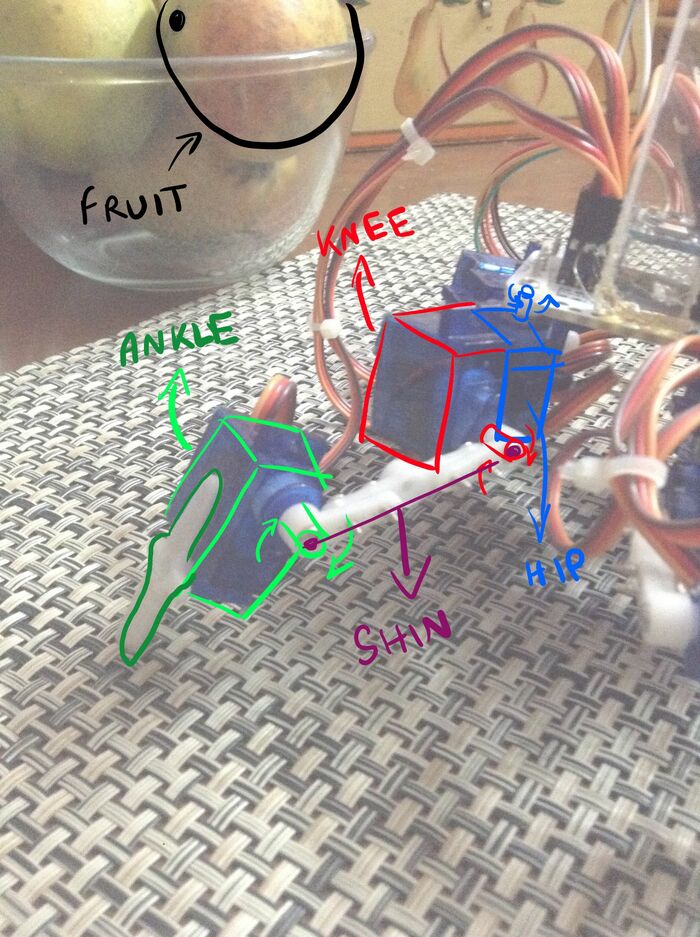 FRUIT
KNEE
ANKLE
HIP
SHIN